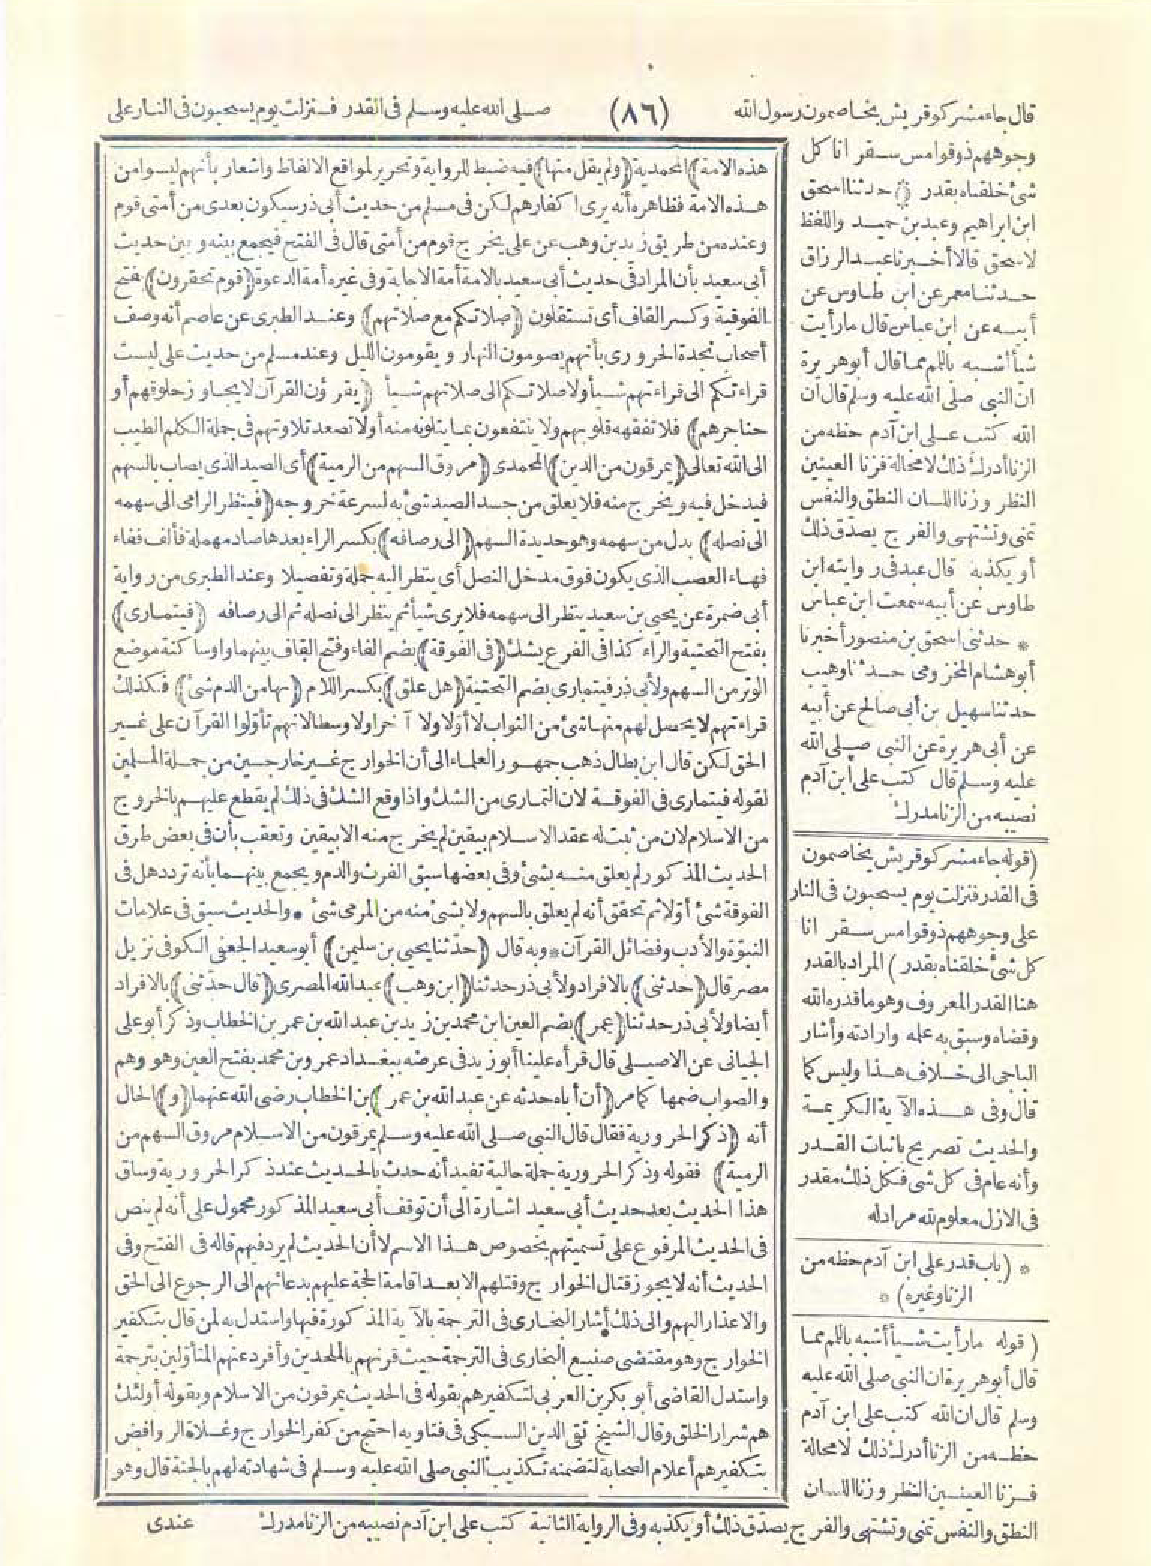 قال جاء مشركو قريش يخاصمون رسول الله (٨٦) صلى الله عليه وسلم فى القدر فنزلت يوم يسحبون فى النار على
وجوههم ذوقوا مس سقر انا كل
شئ خلقناه بقدر حدثنا اسحق
ابن ابراهيم وعبد بن حميد واللفظ
لاسحق قالا أخبرنا عبد الرزاق
حدثنا معمر عن ابن طاوس عن
أبيه عن ابن عباس قال مارأيت
شيأ أشبه باللمم مما قال أبو هريرة
ان النبى صلى الله عليه وسلم قال ان
الله كتب على ابن آدم حظه من
الزنا أدرك ذلك لا محالة فزنا العينين
النظر وزنا اللسان النطق والنفس
تمنى وتشتهى والفرج يصدّق ذلك
أو يكذبه قال عبد فى روايته ابن
طاوس عن أبيه سمعت ابن عباس
* حدثنى اسحق بن منصور أخبرنا
أبو هشام المخزومى حدثنا وهيب
حدثنا سهيل بن أبى صالح عن أبيه
عن أبى هريرة عن النبى صلى الله
عليه وسلم قال كتب على ابن آدم
نصيبه من الزنا مدرك
(قوله جاء مشركو قريش يخاصمون
فى القدر فنزلت يوم يسحبون فى النار
على وجوههم ذوقوا مس سقر انا
كل شئ خلقناه بقدر) المراد بالقدر
هنا القدر المعروف وهو ما قدره الله
وقضاه وسبق به علمه وارادته وأشار
الباجى الى خلاف هذا وليس كما
قال وفى هذه الآية الكريمة
والحديث تصريح باثبات القدر
وأنه عام فى كل شئ فكل ذلك مقدر
فى الازل معلوم لله مراد له
* (باب قدر على ابن آدم حظه من
الزنا وغيره) *
(قوله مارأيت شيأ أشبه باللمم مما
قال أبو هريرة ان النبى صلى الله عليه
وسلم قال ان الله كتب على ابن آدم
حظه من الزنا أدرك ذلك لا محالة
فزنا العينين النظر وزنا اللسان
النطق والنفس تمنى وتشتهى والفرج يصدّق ذلك أو يكذبه وفى الرواية الثانية كتب على ابن آدم نصيبه من الزنا مدرك عندى
هذه الامة) المحمدية (ولم يقل منها) فيه ضبط للرواية وتحرير لمواقع الالفاظ واشعار بأنهم ليسوا من
هذه الامة فظاهره أنه يرى اكفارهم لكن فى مسلم من حديث أبى ذر سيكون بعدى من أمتى قوم
وعنده من طريق زيد بن وهب عن على يخرج قوم من أمتى قال فى الفتح فيجمع بينه وبين حديث
أبى سعيد بأن المراد فى حديث أبى سعيد بالامة أمة الاجابة وفى غيره أمة الدعوة (قوم تحقرون) بفتح
الفوقية وكسر القاف أى تستقلون (صلاتكم مع صلاتهم) وعند الطبرى عن عاصم أنه وصف
أصحاب نجدة الحرورى بأنهم يصومون النهار ويقومون الليل وعند مسلم من حديث على ليست
قراءتكم الى قراءتهم شيأ ولا صلاتكم الى صلاتهم شيأ (يقرؤن القرآن لا يجاوز حلوقهم أو
حناجرهم) فلا تفقهه قلوبهم ولا ينتفعون بما يتلونه منه أو لا تصعد تلاوتهم فى جملة الكلم الطيب
الى الله تعالى (يمرقون من الدين) المحمدى (مروق السهم من الرمية) أى الصيد الذى يصاب بالسهم
فيدخل فيه ويخرج منه فلا يعلق من جسد الصيد شئ به لسرعة خروجه (فينظر الرامى الى سهمه
الى نصله) بدل من سهمه وهو حديدة السهم (الى رصافه) بكسر الراء بعدها صاد مهملة فألف ففاء
فهاء العصب الذى يكون فوق مدخل النصل أى ينظر اليه جملة وتفصيلا وعند الطبرى من رواية
أبى ضمرة عن يحيى بن سعيد ينظر الى سهمه فلا يرى شيأ ثم ينظر الى نصله ثم الى رصافه (فيتمارى)
بفتح التحتية والراء كذا فى الفرع يشك (فى الفوقة) بضم الفاء وفتح القاف بينهما واو ساكنة موضع
الوتر من السهم ولأبى ذر فيتمارى بضم التحتية (هل علق) بكسر اللام (بها من الدم شئ) فكذلك
قراءتهم لا يحصل لهم منها شئ من الثواب لا أولا ولا آخرا ولا وسطا لانهم تأولوا القرآن على غير
الحق لكن قال ابن بطال ذهب جمهور العلماء الى أن الخوارج غير خارجين من جملة المسلمين
لقوله فيتمارى فى الفوقة لان التمارى من الشك واذا وقع الشك فى ذلك لم يقطع عليهم بالخروج
من الاسلام لان من ثبت له عقد الاسلام بيقين لم يخرج منه الا بيقين وتعقب بأن فى بعض طرق
الحديث المذكور لم يعلق منه بشئ وفى بعضها سبق الفرث والدم ويجمع بينهما بأنه تردد هل فى
الفوقة شئ أولا ثم تحقق أنه لم يعلق بالسهم ولا بشئ منه من المرمى شئ * والحديث سبق فى علامات
النبوّة والأدب وفضائل القرآن * وبه قال (حدّثنا يحيى بن سليمن) أبو سعيد الجعفى الكوفى نزيل
مصر قال (حدثنى) بالافراد ولأبى ذر حدثنا (ابن وهب) عبد الله المصرى (قال حدّثنى) بالافراد
أيضا ولأبى ذر حدثنا (عمر) بضم العين ابن محمد بن زيد بن عبد الله بن عمر بن الخطاب وذكر أبو على
الجيانى عن الاصيلى قال قرأه علينا أبو زيد فى عرضه ببغداد عمرو بن محمد بفتح العين وهو وهم
والصواب ضمها كما مر (أن أباه حدثه عن عبد الله بن عمر) بن الخطاب رضى الله عنهما (و) الحال
أنه (ذكر الحرورية فقال قال النبى صلى الله عليه وسلم يمرقون من الاسلام مروق السهم من
الرمية) فقوله وذكر الحرورية جملة حالية تفيد أنه حدث بالحديث عند ذكر الحرورية وساق
هذا الحديث بعد حديث أبى سعيد اشارة الى أن توقف أبى سعيد المذكور محمول على أنه لم ينص
فى الحديث المرفوع على تسميتهم بخصوص هذا الاسم لا أن الحديث لم يرد فيهم قاله فى الفتح وفى
الحديث أنه لا يجوز قتال الخوارج وقتلهم الا بعد اقامة الحجة عليهم بدعائهم الى الرجوع الى الحق
والاعذار اليهم والى ذلك أشار البخارى فى الترجمة بالآية المذكورة فيها واستدل به لمن قال بتكفير
الخوارج وهو مقتضى صنيع البخارى فى الترجمة حيث قرنهم بالملحدين وأفرد عنهم المتأوّلين بترجمة
واستدل القاضى أبو بكر بن العربى لتكفيرهم بقوله فى الحديث يمرقون من الاسلام وبقوله أولئك
هم شرار الخلق وقال الشيخ تقى الدين السبكى فى فتاويه احتج من كفر الخوارج وغلاة الروافض
بتكفيرهم أعلام الصحابة لتضمنه تكذيب النبى صلى الله عليه وسلم فى شهادته لهم بالجنة قال وهو